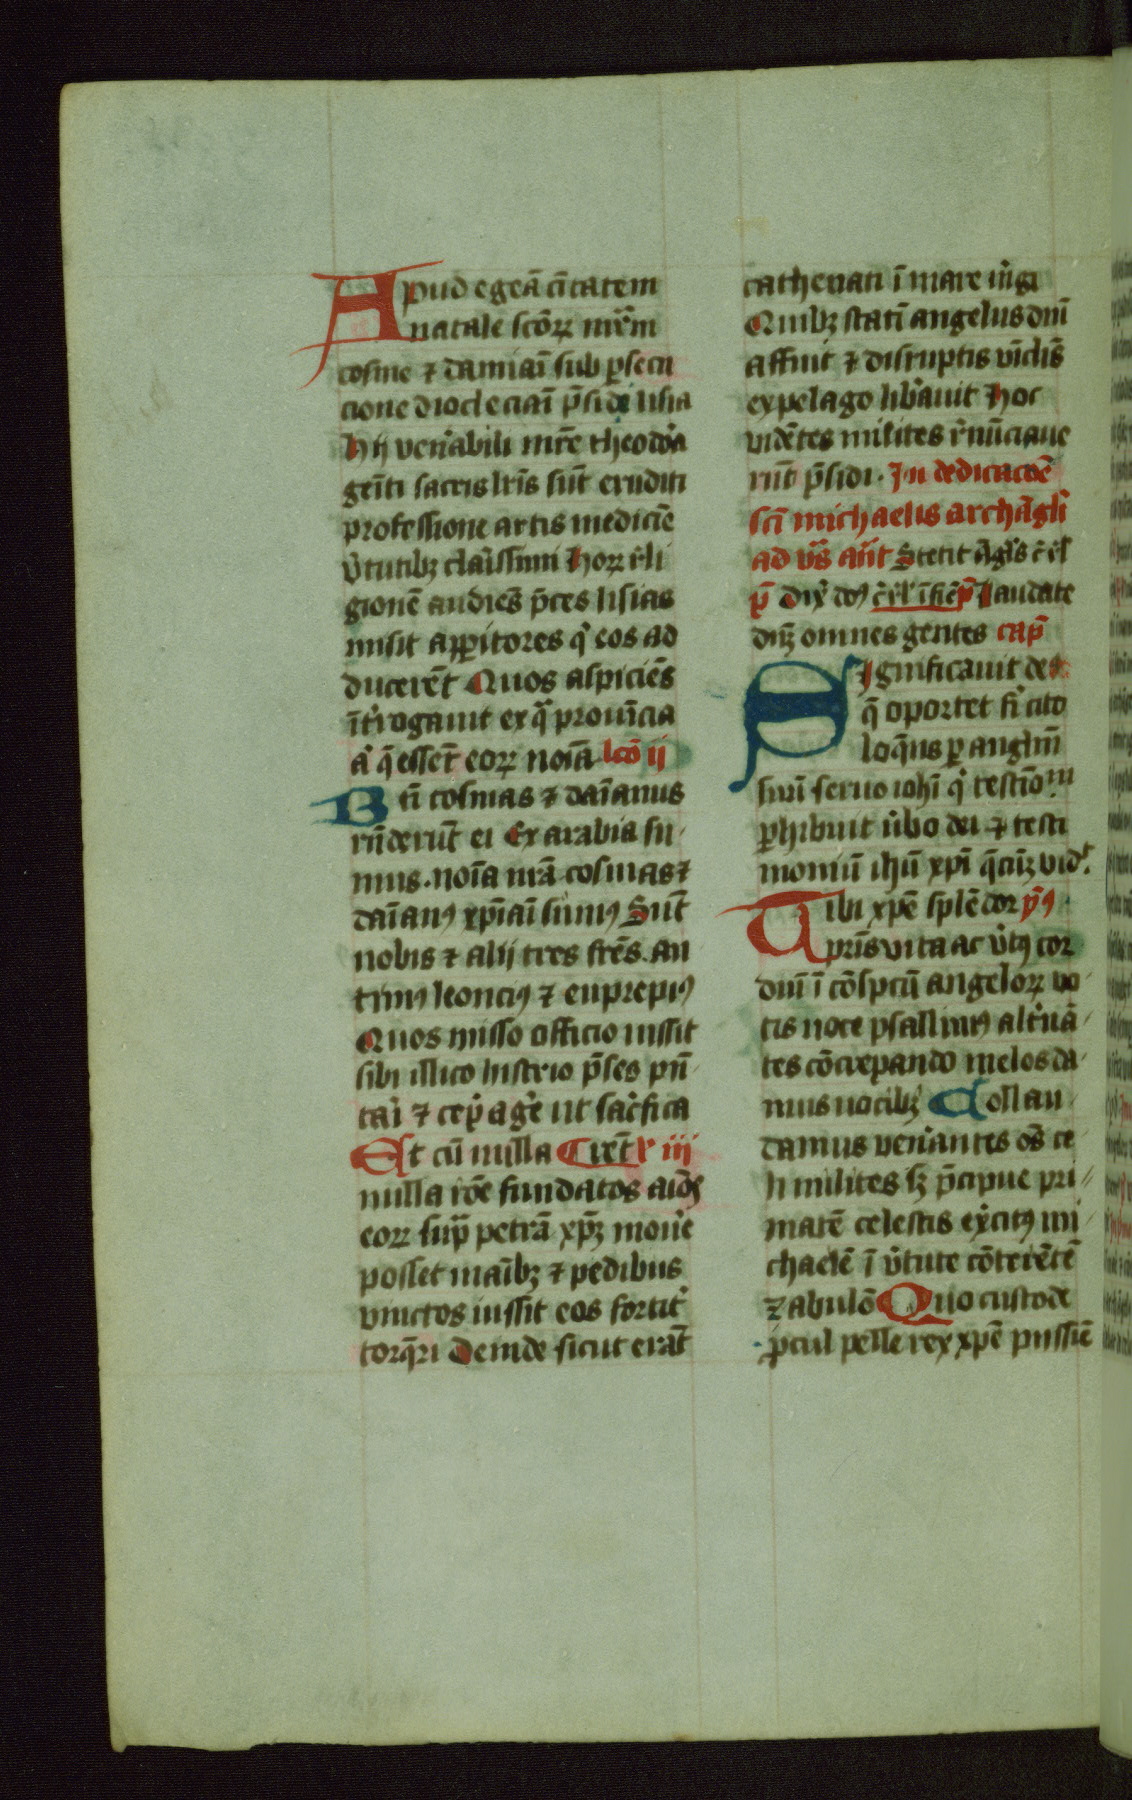 Apud egeā ciͥtatem
natale scōꝝ mr̄m
cosme ⁊ damiāi sub ꝑsecu
cione dioclecīai p̄side lisia
Hij ven̄abili mr̄e theodoͣa
genīti sacris lr̄is sūt eruditi
professione artis medicīe
v̓tutibꝫ claͥissimi Hoꝝ r̓li
gionē audiēs p̄ses lisias
misit apparitores qͥ eos ad
ducerēt Quos aspiciēs
īt̓rogauit ex qͣ prouīcia
aͥ q̄ essēt eoꝝ noīa lcō ij
Bti cosmas ⁊ daīanus
rn̄derūt ei Ex arabia su
mus. noīa nr̄a cosmas ⁊
daīanꝰ xp̄iāi sumꝰ Sūt
nobis ⁊ alij tres frēs. an
timꝰ leonciꝰ ⁊ euprepiꝰ
Quos misso officio iussit
sibi illico lustrio p̄ses pn̄
tari ⁊ cep̄ ag̓e ut sac̓fica
Et cū nulla ℟ iij
nulla rōe fundatos aīos
eoꝝ suꝑ petrā xp̄ꝫ mou̓e
posset maībꝫ ⁊ pedibus
vinctos iussit eos fortit̓
torq̄ri Deinde sicut erāt
cathenati ī mare m̓gi
Quibꝫ statī angelus dn̄i
affuit ⁊ disruptis vīclis
ex pelago lib̓auit Hoc
vidētes milites r̓nūciaue
rūt p̄sidi. In dedicacōe
scī michaelis archāgli
ad vs̄ an̄t Stetit āgl̓s
Laudate
dn̄ꝫ omnes gentes capͫ
Significauit deꝰ
q̄ oportet fi̓ cito
loq̄ns ꝑ anglm̄
suū seruo iohī qͥ testīo.ͫ
ꝑhibuit v̓bo dei ⁊ testi
moniū ihū xp̄i q̄cūꝫ vid̓.
Tibi xpē splēdor p̄ꝰ
pris vita ac v̓tꝰ cor
diū ī cōspcū angeloꝝ vo
tis uoce psallimꝰ alt̓nā
tes cōcrepando melos da
mus uocibꝫ Collau
damus ven̓antes oēs ce
li milites sꝫ p̄cipue pri
matē celestis ex̓citꝰ mi
chaelē ī v̓tute cōterētē
zabulō Quo custode
ꝓcul pelle rex xpē pijssīe